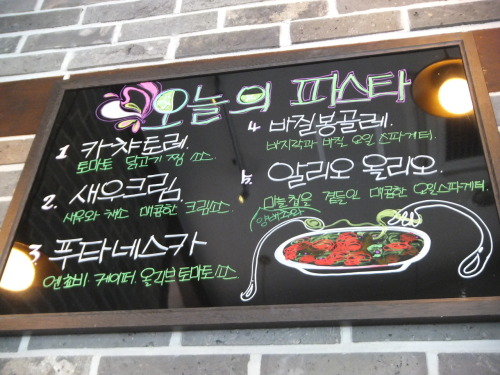 오늘의 파스타
1 카챠토레.
토마토 닭고기 찜 소스.
2. 새우크림
새우와 채소 매콤한 크림소스.
3. 푸타네스카
엔쵸비. 케이퍼. 올리브 토마토소스.
4. 바질봉골레.
바지락과 바질 오일 스파게티.
알리오 올리오.
마늘칩을 곁들인 매콤한 오일스파게티